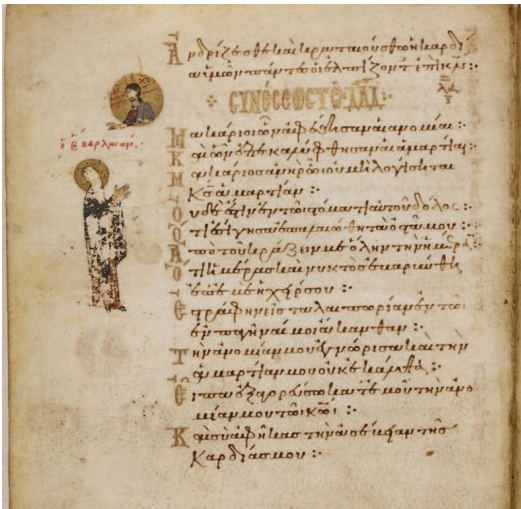 Ἀνδρίζεσθε καὶ κραταιούσθω ἡ καρδί
α ὑμῶν πάντες οἱ ἐλπίζοντ ἐπὶ κν:
ΣΥΝΕΣΕΩΣ ΤΩ ΔΑΔ:
λα
Μακάριοι ὧν ἀφέθησαν αἱ ἀνομίαι:
Καὶ ὧν ἐπεκαλύφθησαν αἱ ἁμαρτίαι:
Μακάριος ἀνὴρ ὧι οὐ μὴ λογίσηται
κς ἁμαρτίαν:
Οὐδέ ἐστιν ἐν τῶι στόματι αὐτοῦ δόλος:
Ὅτι ἐσίγησα ἐπαλαιώθη τὰ ὀστᾶ μου:
Ἀπὸ τοῦ κράζειν με ὅλην τὴν ἡμέραν
Ὅτι ἡμέρας καὶ νυκτὸς ἐβαρύνθη
ἐπ ἐμὲ ἡ χείρ σου:
Ἐστράφην εἰς ταλαιπωρίαν ἐν τῶι
ἐμπαγῆναί μοι ἄκανθαν:
Τὴν ἀνομίαν μου ἐγνώρισα καὶ τὴν
ἁμαρτίαν μου οὐκ ἐκάλυψα:
Εἶπα ἐξαγορεύσω κατ ἐμοῦ τὴν ἀνο
μίαν μου τῶι κωι:
Καὶ σὺ ἀφῆκας τὴν ἀσέβειαν τῆς
καρδίας μου: